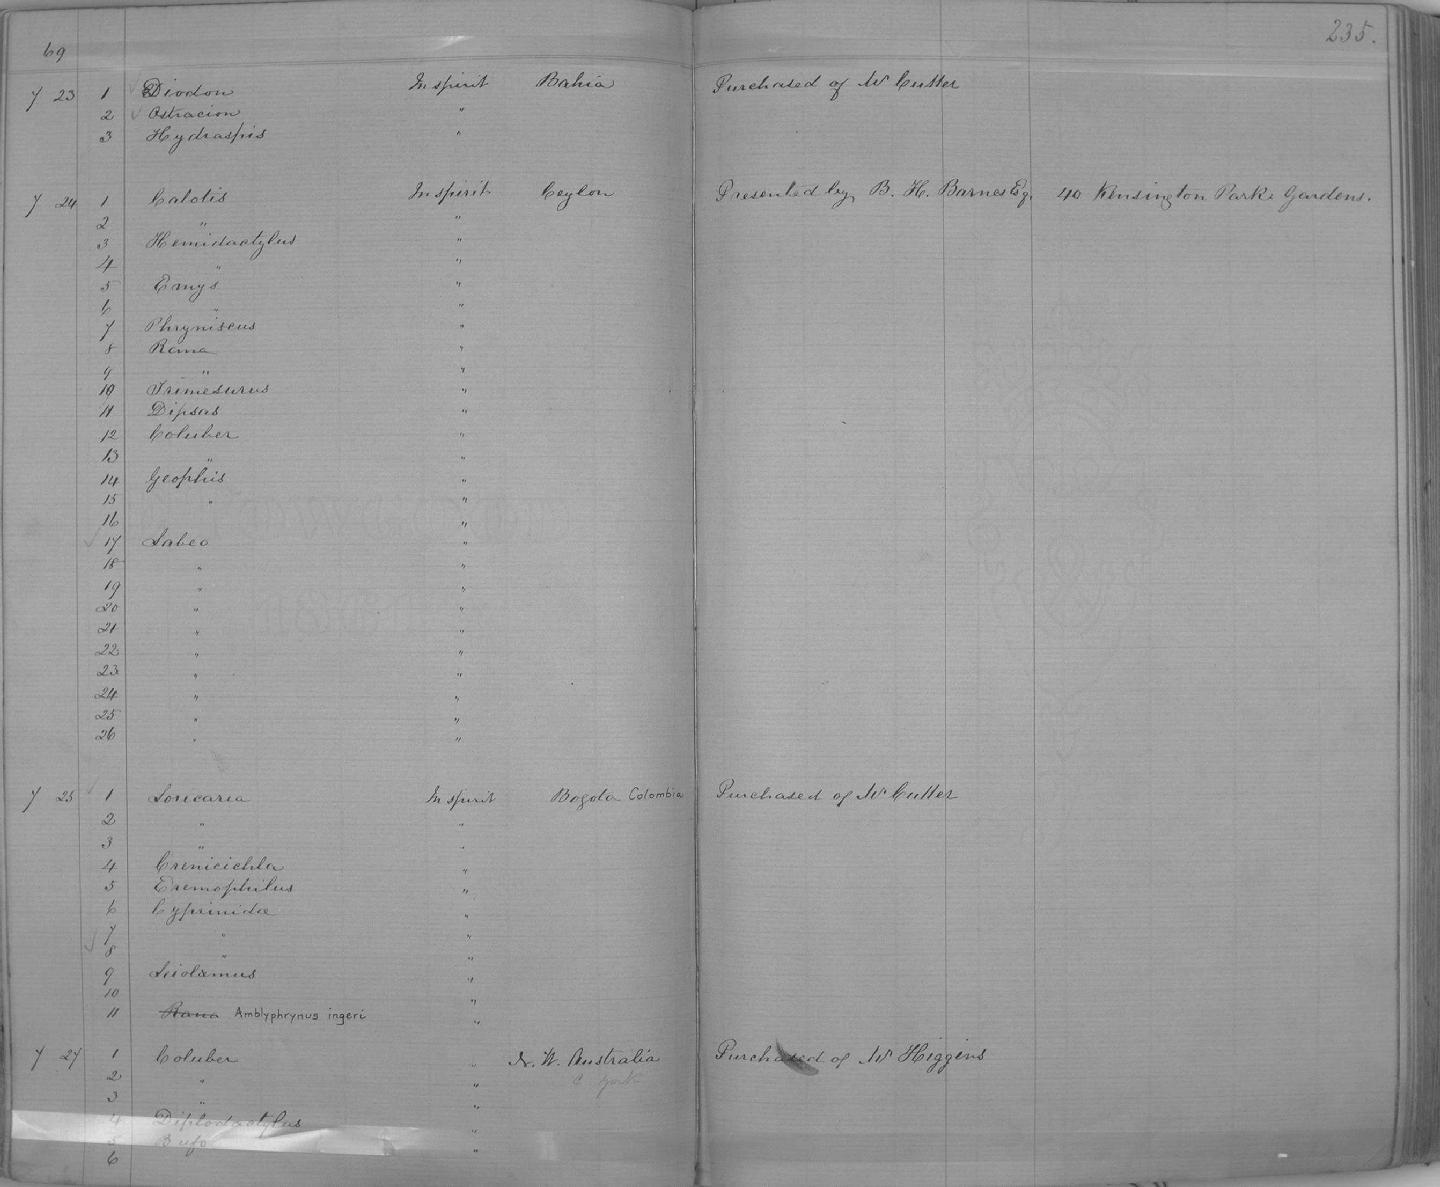 69
235.
7 23 1 Diodon In spirit Bahia Purchased of Mr Cutter
2 Ostracion "
3 Hydraspis "
7 24 1 Calotis In spirit Ceylon Presented by B. H. Barnes Esq. 40 Kensington Park Gardens.
2 " "
3 Hemidactylus "
4 " "
5 Emys "
6 " "
7 Phryniscus "
8 Rana "
9 " "
10 Trimesurus "
11 Dipsas "
12 Coluber "
13 " "
14 Geophis "
15 " "
16 "
17 Labeo "
18 " "
19 " "
20 " "
21 " "
22 " "
23 " "
24 " "
25 " "
26 " "
7 25 1 Loricaria In spirit Bogota Colombia Purchased of Mr Cutter
2 " "
3 " "
4 Crenicichla "
5 Eremophilus "
6 Cyprinidae "
7 " "
8 " "
9 Liolamus "
10 "
11 Rana Amblyphrynus ingeri "
7 27 1 Coluber " N. W. Australia Purchased of Mr Higgins
2 " " C York
3 " "
4 Diplodactylus "
5 Bufo "
6